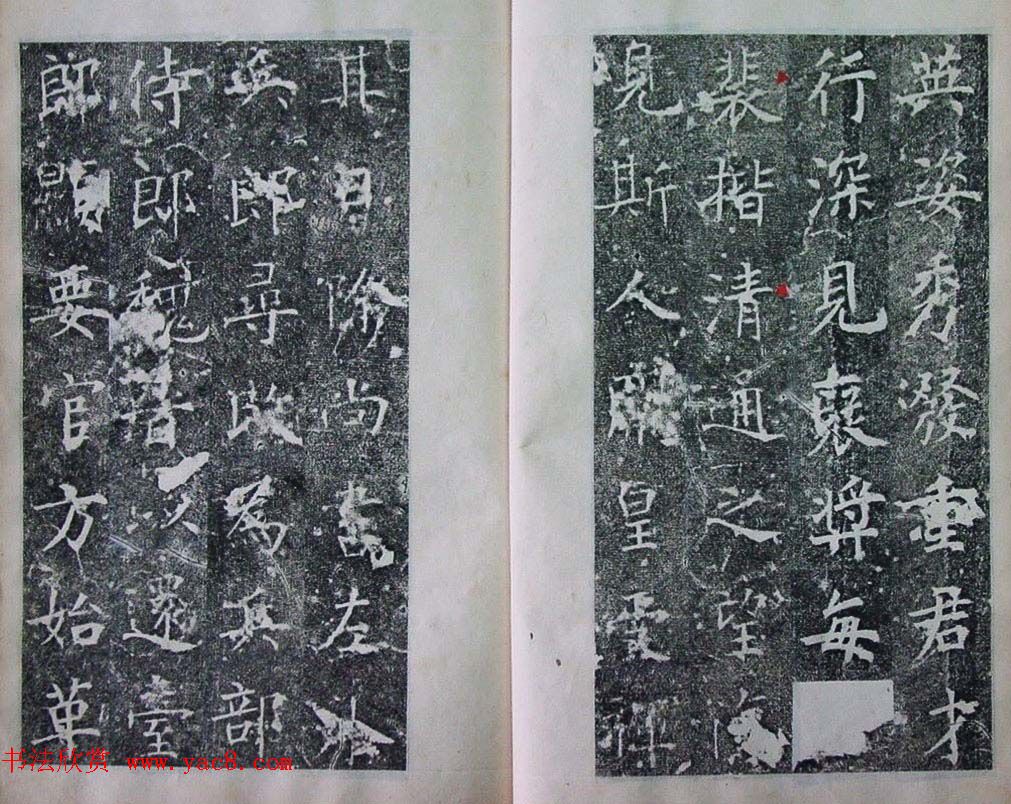 英姿秀發重君才
行深見襃奬每
裴揩清通之望復
見斯人爾皇受禪
其日除尚書左外
兵郎尋改爲兵部
侍郎魏晉以還臺
郎顯要官方始革
书法欣赏 www.yac8.com